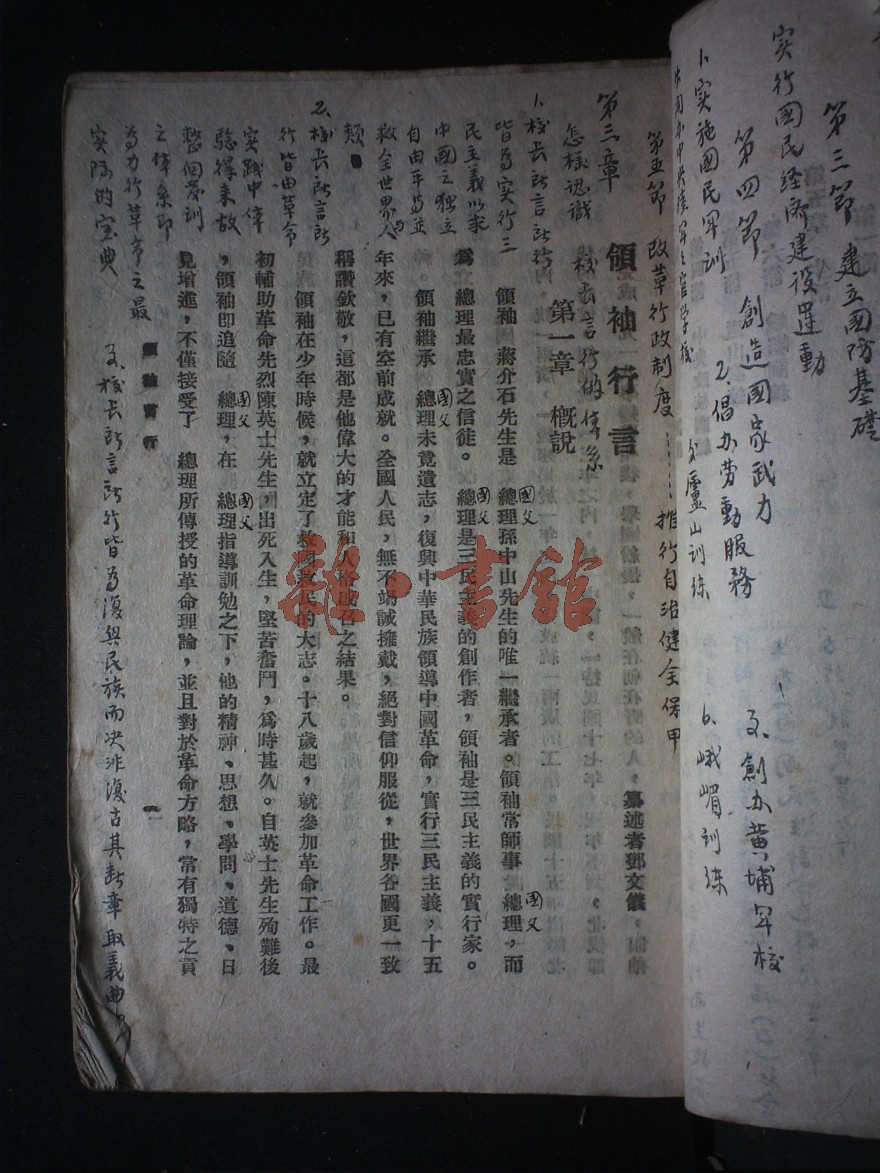 第三節 建立國防基礎
实行國民经濟建设運動
第四節 創造國家武力
1、实施國民军训 2、倡办劳動服務 3、創办黄埔军校
5、廬山训练 6、峨嵋训练
第五節 改革行政制度……推行自治健全保甲
領袖行言
纂述者鄧文儀
第一章 概說
領袖 蔣介石先生是 總理孫中山先生的唯一繼承者。領袖常師事 總理,而
為 總理最忠實之信徒。 總理是三民主義的創作者,領袖是三民主義的實行家。
領袖繼承 總理未竟遺志,復興中華民族領導中國革命,實行三民主義,十五
年來,已有空前成就。全國人民,無不竭誠擁戴,絕對信仰服從,世界各國更一致
稱讚欽敬,這都是他偉大的才能和人格感召之結果。
領袖在少年時候,就立定了救國救民的大志。十八歲起,就參加革命工作。最
初輔助革命先烈陳英士先生,出死入生,堅苦奮鬥,為時甚久。自英士先生殉難後
,領袖即追隨 總理,在 總理指導訓勉之下,他的精神、思想、學問、道德、日
見增進,不僅接受了 總理所傳授的革命理論,並且對於革命方略,常有獨特之貢
領袖言行
一
國父
國父
國父
國父
國父
國父
國父
第三章
怎樣認識
校长言行的体系
1、校长所言所行
皆为实行三
民主義以求
中國之独立
自由平等並
救全世界人
類
2、校长所言所
行皆由革命
实践中体
驗得来故
整個发训
之体系即
为力行革命之最
实际的宝典
3、校长所言所行皆为復興民族而决非復古其断章取義曲
雜·書館